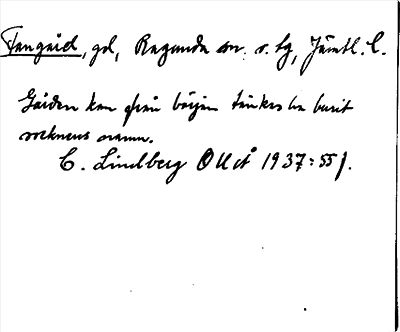 Tangeid, gd, Ragunda sn. o. tg, Jämtl. l.
Gården kan från början tänkas ha burit
socknens namn.
C. Lindberg OUÅ 1937: 55 f.